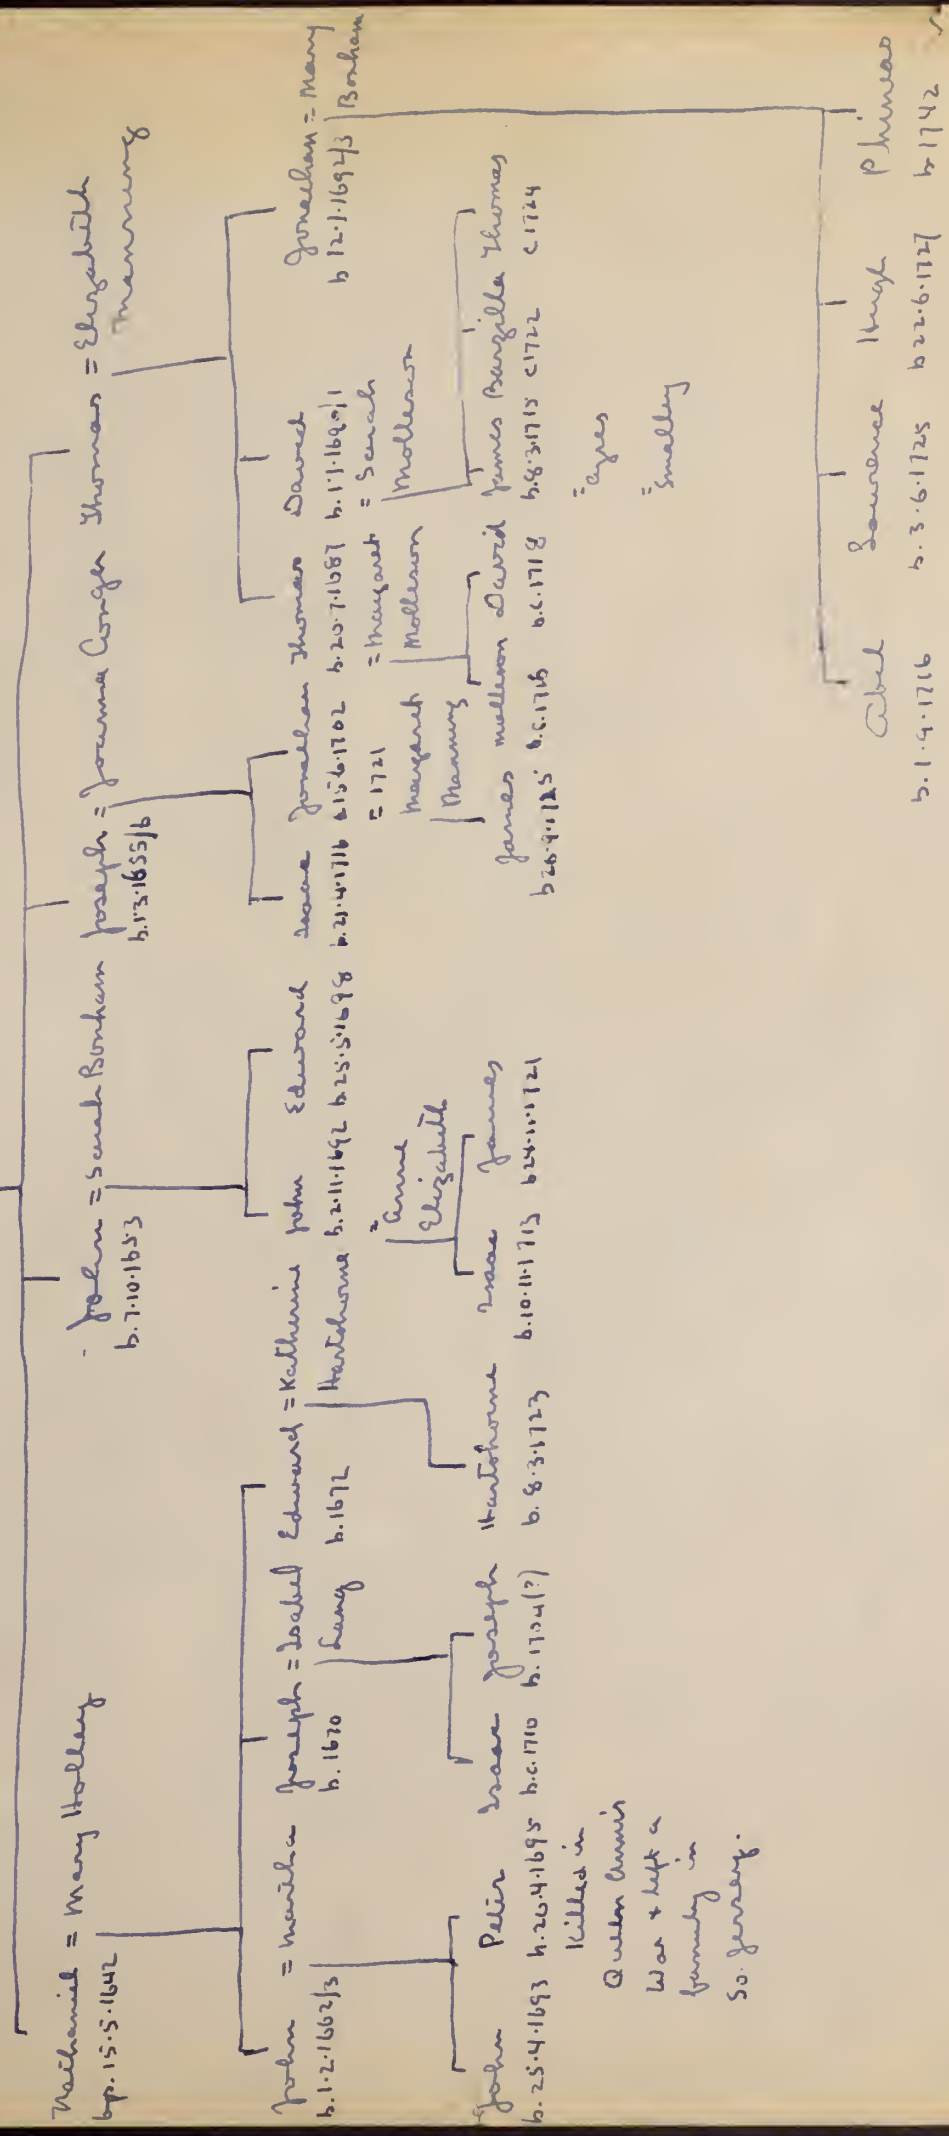 Nathaniel = Mary Holley
bp. 15.5.1642
John = Sarah Bonham
b. 7.10.1653
Joseph = Joanna Conger
b. 1.3.1655/6
Thomas = Elizabeth
Manning
John = Martha
b. 1.2.1662/3
Joseph = Isabel
Lang
b. 1670
Edward = Katherine
Hartshorne
b. 1672
John
b. 2.11.1692
Edward
b. 25.5.1698
Isaac
b. 21.4.1716
Jonathan
b. 15.6.1702
= 1721
Margaret
Manning
Thomas
b. 20.7.1687
= Margaret
Molleson
David
= Sarah
Molleson
Jonathan = Mary
Bonham
b 12.1.1692/3
= Anne
Elizabeth
John
b. 25.4.1693
Peter
b. 20.4.1695
Killed in
Queen Anne's
War & left a
family in
So. Jersey.
Isaac
b.c. 1710
Joseph
b. 1704(?)
Hartshorne
b. 8.3.1723
Isaac
b. 10.11.1713
James
b 24.11.1721
James
b 26.9.1725
Molleson
b.c. 1716
David
b.c. 1718
James
b. 8.3.1715
= Ayres
= Smalley
Barzilla
c 1722
Thomas
c 1724
Abel
b. 1.9.1716
Lawrence
b. 3.6.1725
Hugh
b 22.6.1727
Phineas
b 1742